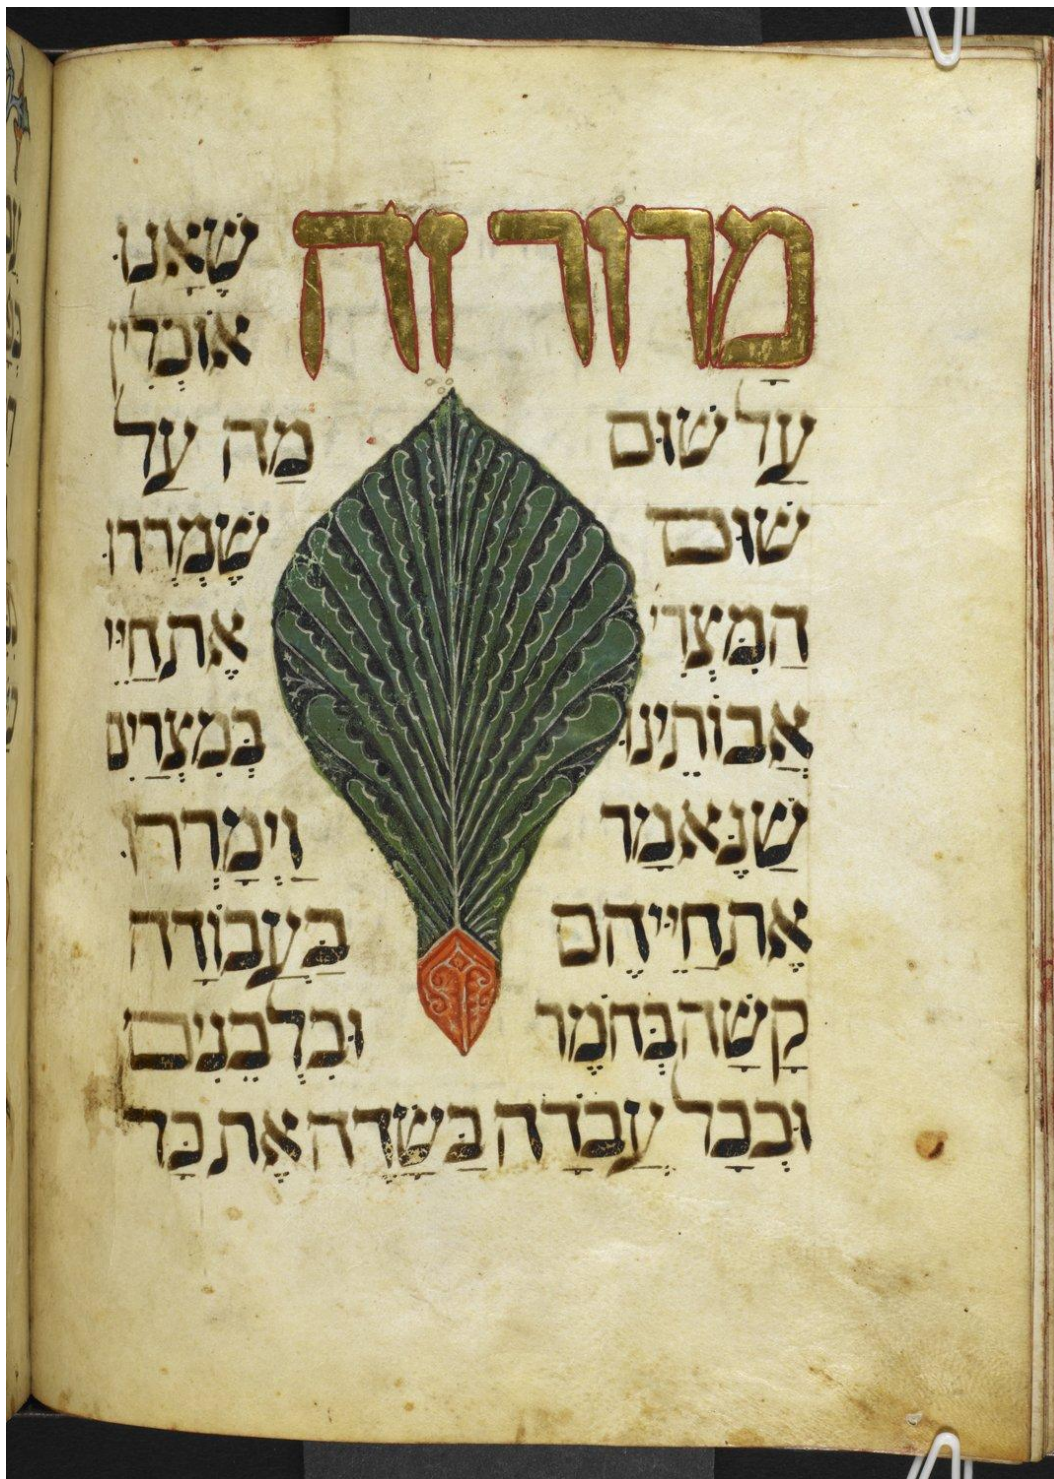 מרור זה שֶׁאָנוּ
אוֹכְלִין
עַל שׁוּם מַה עַל
שׁוּם שֶׁמְרְרוּ
הַמִּצְרִי אֶת חַיֵּי
אֲבוֹתֵינוּ בְּמִצְרַיִם
שֶׁנֶּאֱמַר וַיְמָרְרוּ
אֶת חַיֵּיהֶם בַּעֲבוֹדָה
קָשָׁה בְּחֹמֶר וּבִלְבֵנִים
וּבְכָל עֲבֹדָה בַּשָּׂדֶה אֶת כָּל